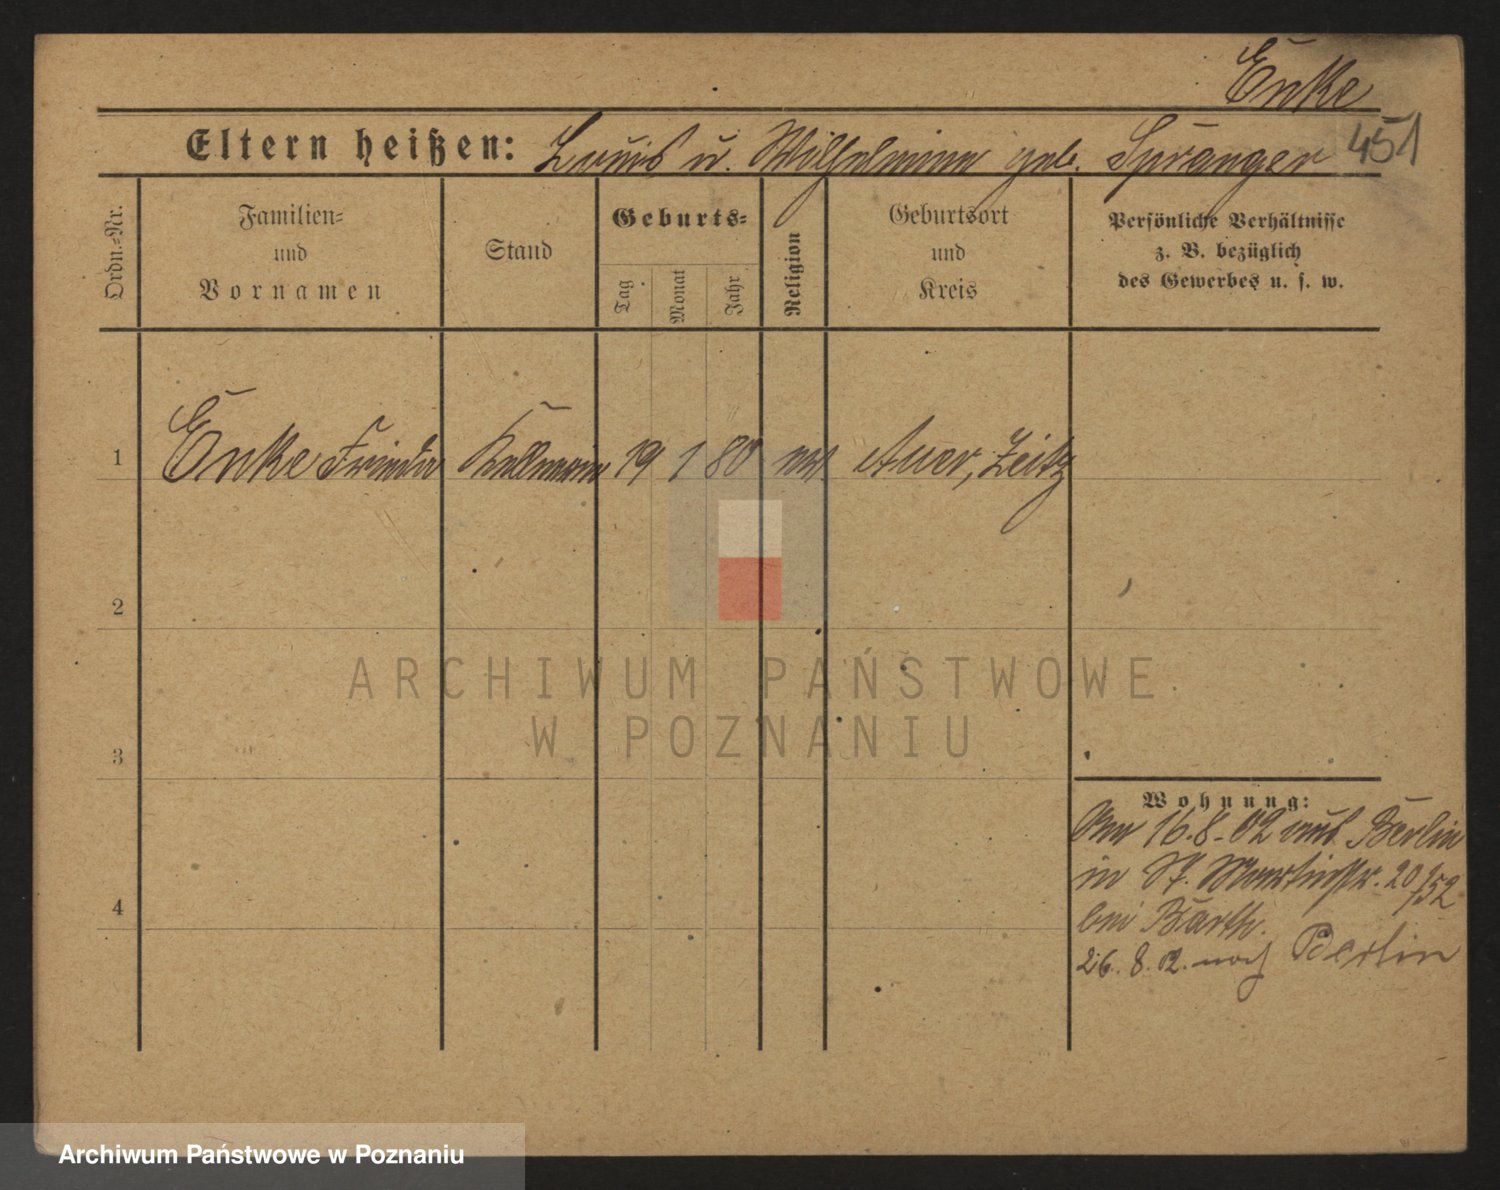 Enke
451
Eltern heißen: Louis u. Wilhelmine geb. Spranger
Ordn.-Nr.
Familien-
und
Vornamen
Stand
Geburts-
Tag
Monat
Jahr
Religion
Geburtsort
und
Kreis
Persönliche Verhältnisse
z. B. bezüglich
des Gewerbes u. s. w.
1 Enke Frieda Kellnerin 19 1 80 ev Auer, Zeitz
2
3
4
ARCHIWUM PAŃSTWOWE
W POZNANIU
Wohnung:
Am 16.8.02 aus Berlin
in St. Martinstr. 20/52
bei Barth.
26.8.02. nach Berlin
Archiwum Państwowe w Poznaniu